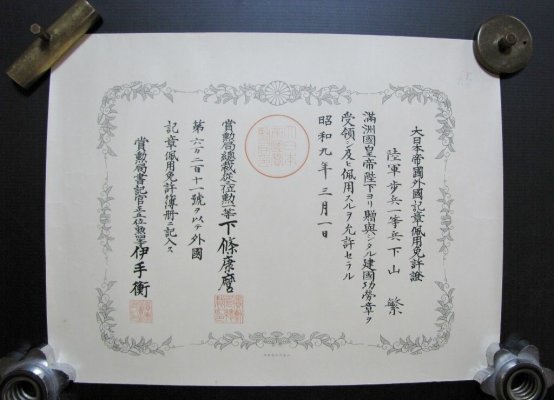 大日本帝國外國記章佩用免許證
陸軍歩兵一等兵下山 繁
滿洲國皇帝陛下ヨリ贈與シタル建國功勞章ヲ
受領シ及ヒ佩用スルヲ允許セラル
昭和九年三月一日
賞勲局總裁從位勲等下條康麿
第六万二百十一號ヲ以テ外國
記章佩用免許簿册ニ記入ス
賞勲局書記官正位勲等伊手衡